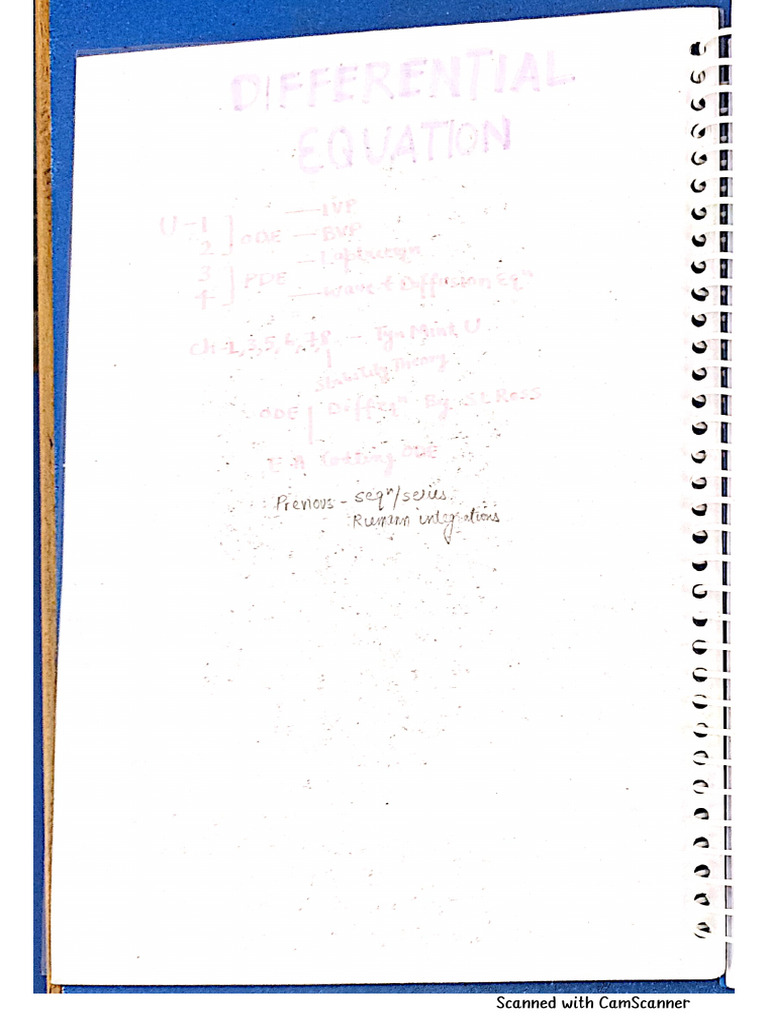 DIFFERENTIAL
EQUATION
U-1 ] ODE — IVP
2 — BVP
3 ] PDE —
4 — Wave & Diffusion Eqⁿ
Ch-1, 3, 5, 6, 7, 8 — Tyn Mint U
Stability Theory
ODE | Diff Eqⁿ By SL Ross
ODE
Previous - Seqⁿ/series
Riemann integrations
Scanned with CamScanner